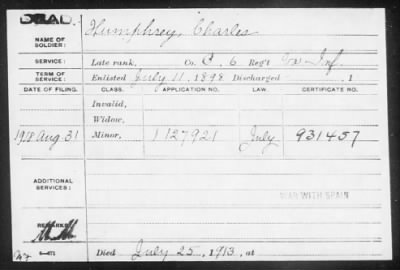 DEAD.
NAME OF SOLDIER: Humphrey, Charles
SERVICE: Late rank, Co. C. 6 Reg't Va Inf
TERM OF SERVICE: Enlisted July 11, 1898 Discharged , 1
DATE OF FILING. CLASS. APPLICATION NO. LAW. CERTIFICATE NO.
Invalid,
Widow,
1918 Aug 31 Minor, 1127921 July 931457
ADDITIONAL SERVICES:
WAR WITH SPAIN
REMARKS:
Died July 25, 1913, at